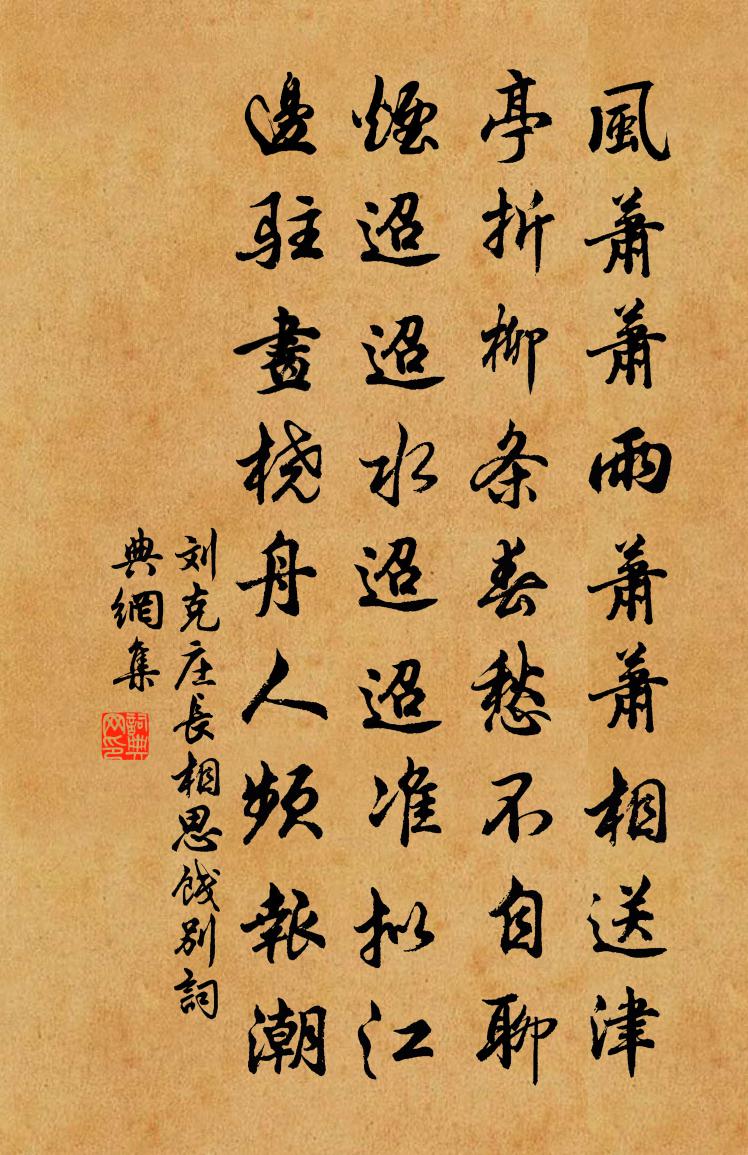 風蕭蕭雨蕭蕭相送津
亭折柳条春愁不自聊
煙迢迢水迢迢准拟江
邊駐畫桡舟人頻報潮
刘克庄長相思餞别詞
典網集
詞典网印